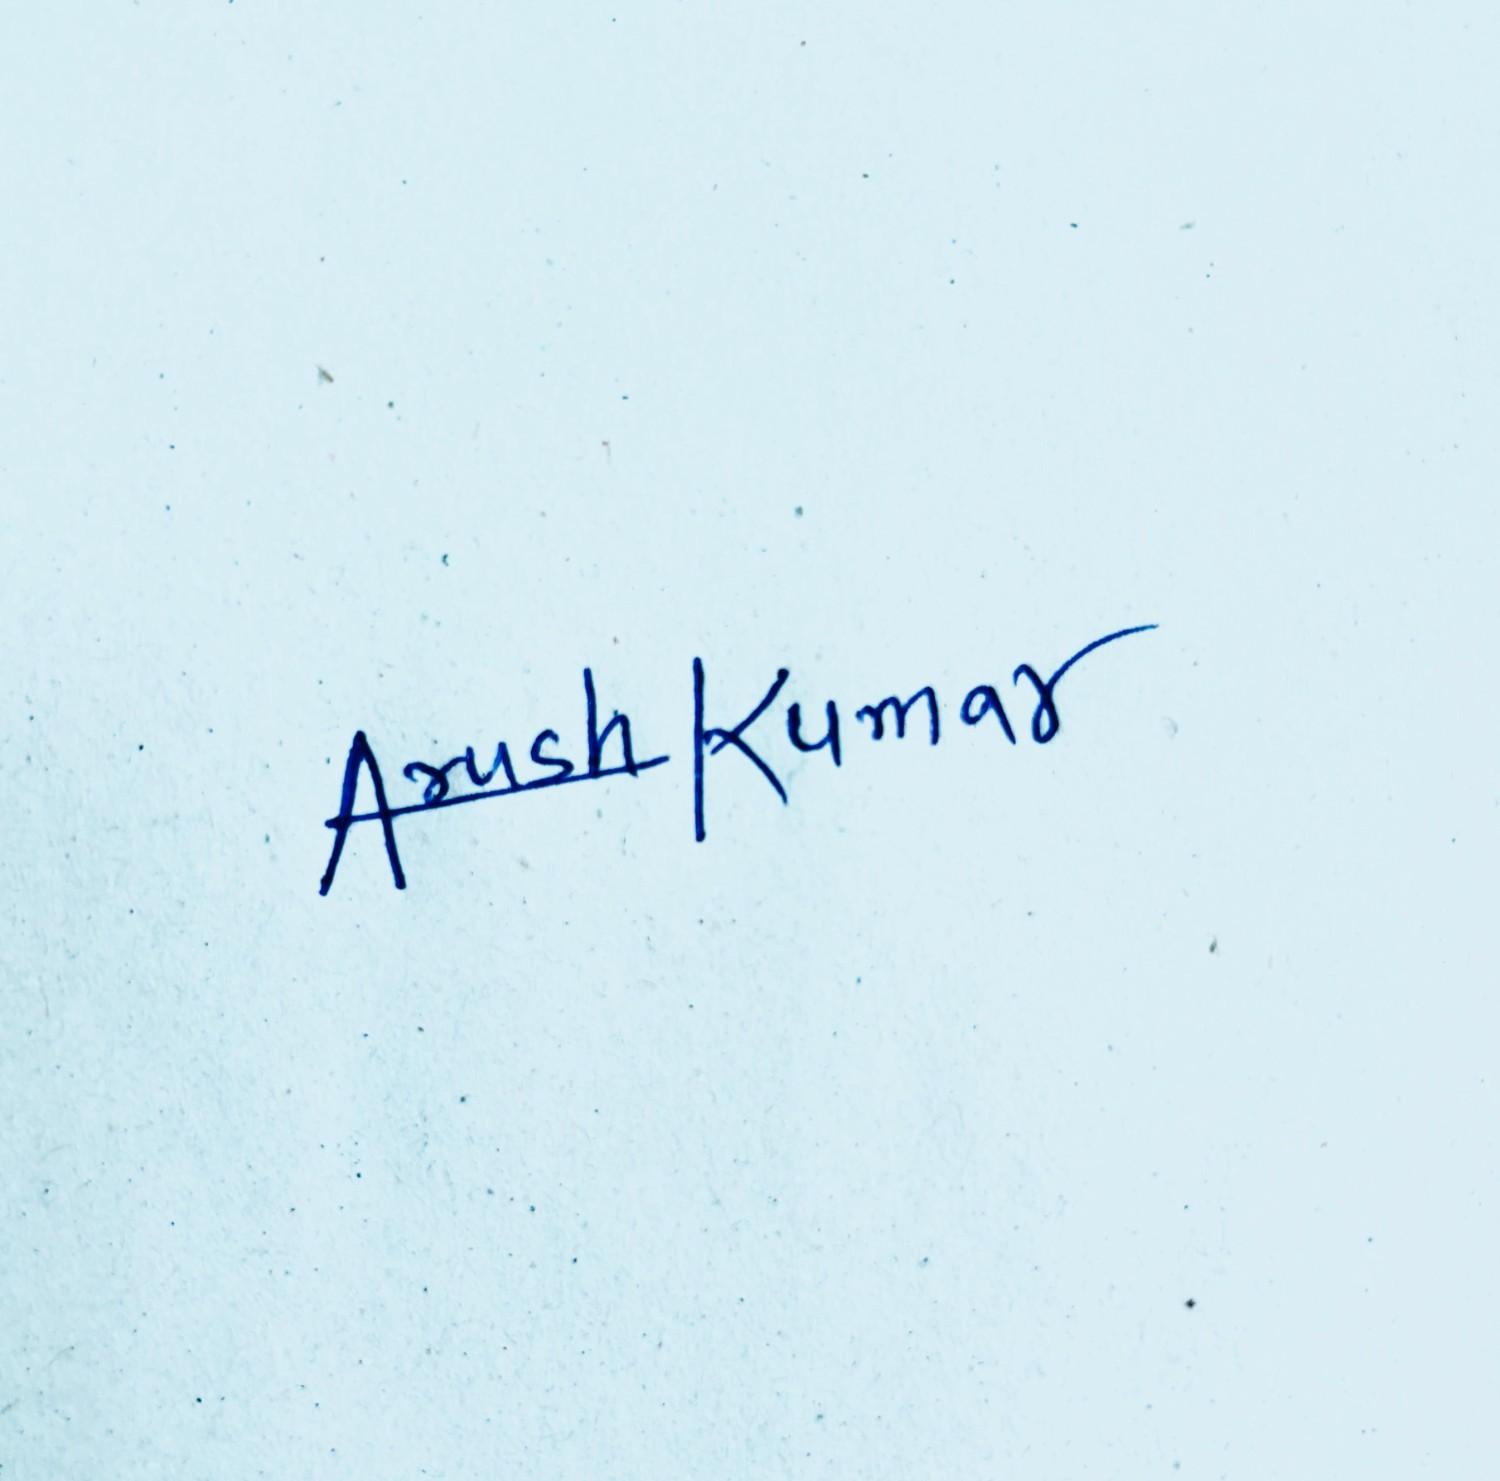 Arush Kumar